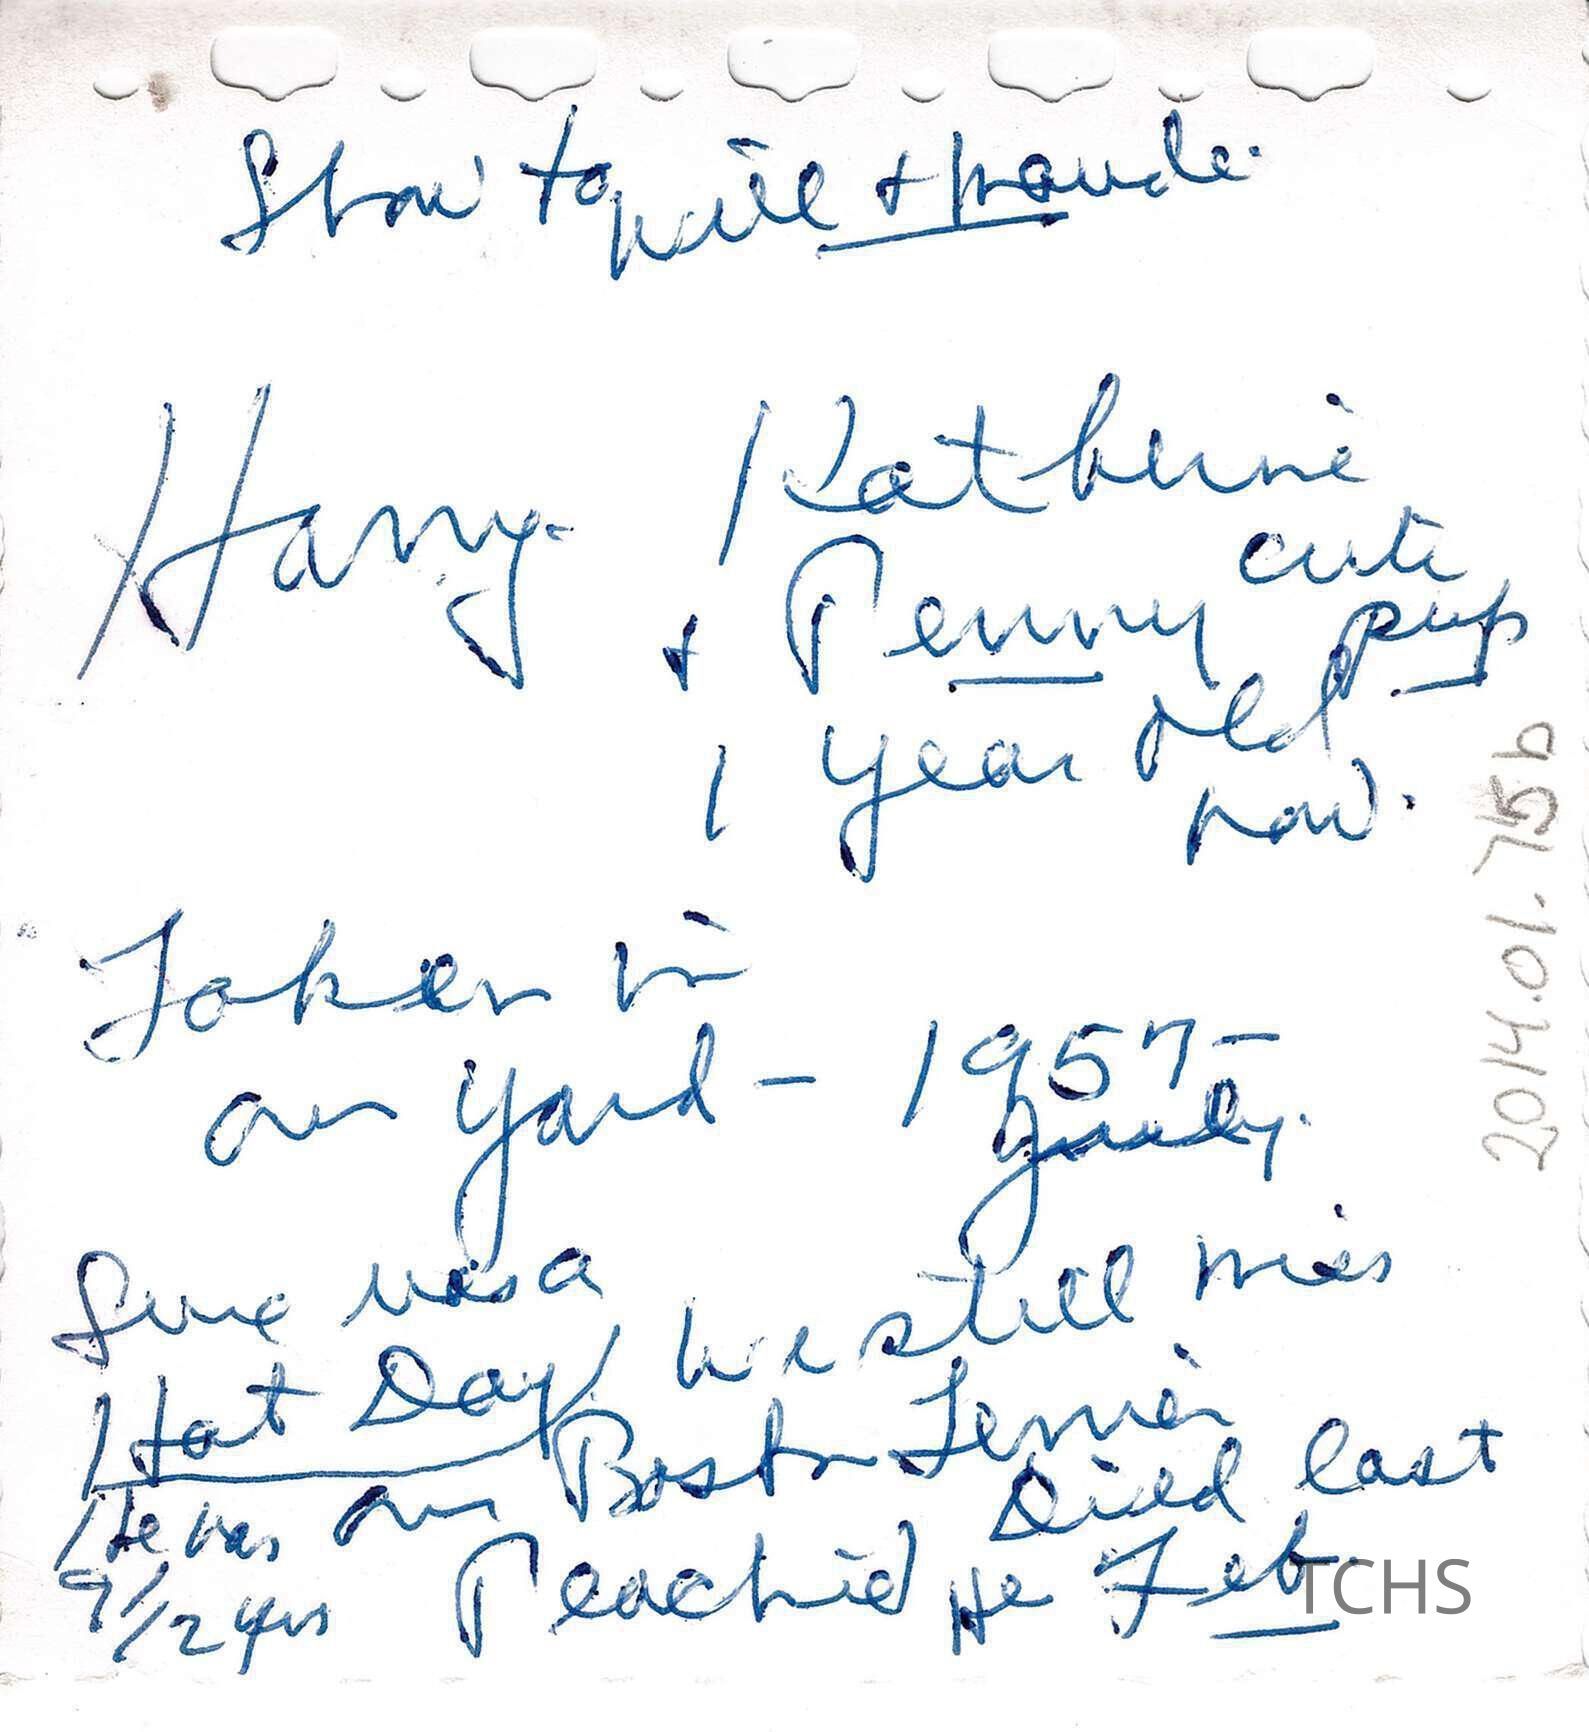 Show to Will & Maude.
Harry. Katherine
& Penny cute pup
1 year old now.
Taken in
our yard - 1957 -
Sure was a
Hot Day, We still miss
our Boston Terrier
Peachie He Died last Feb.
He was
9 1/2 yrs
2014.01.75b
TCHS